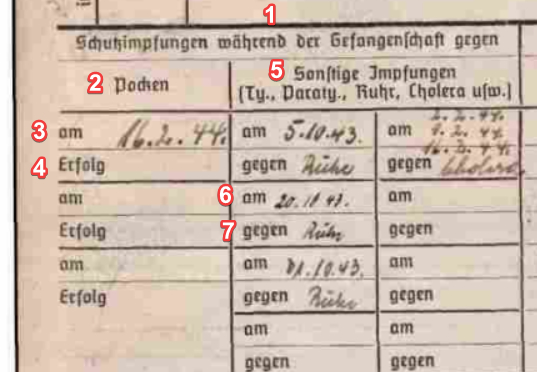 1
Schutzimpfungen während der Gefangenschaft gegen
2 Pocken
5 Sonstige Impfungen
(Ty., Paraty., Ruhr, Cholera usw.)
3 am 16.2.44. am 5.10.43. am 2.2.44. 9.2.44 16.2.44.
4 Erfolg gegen Ruhr gegen Cholera
am 6 am 20.10.43. am
Erfolg 7 gegen Ruhr gegen
am am 10.43. am
Erfolg gegen Ruhr gegen
am am
gegen gegen